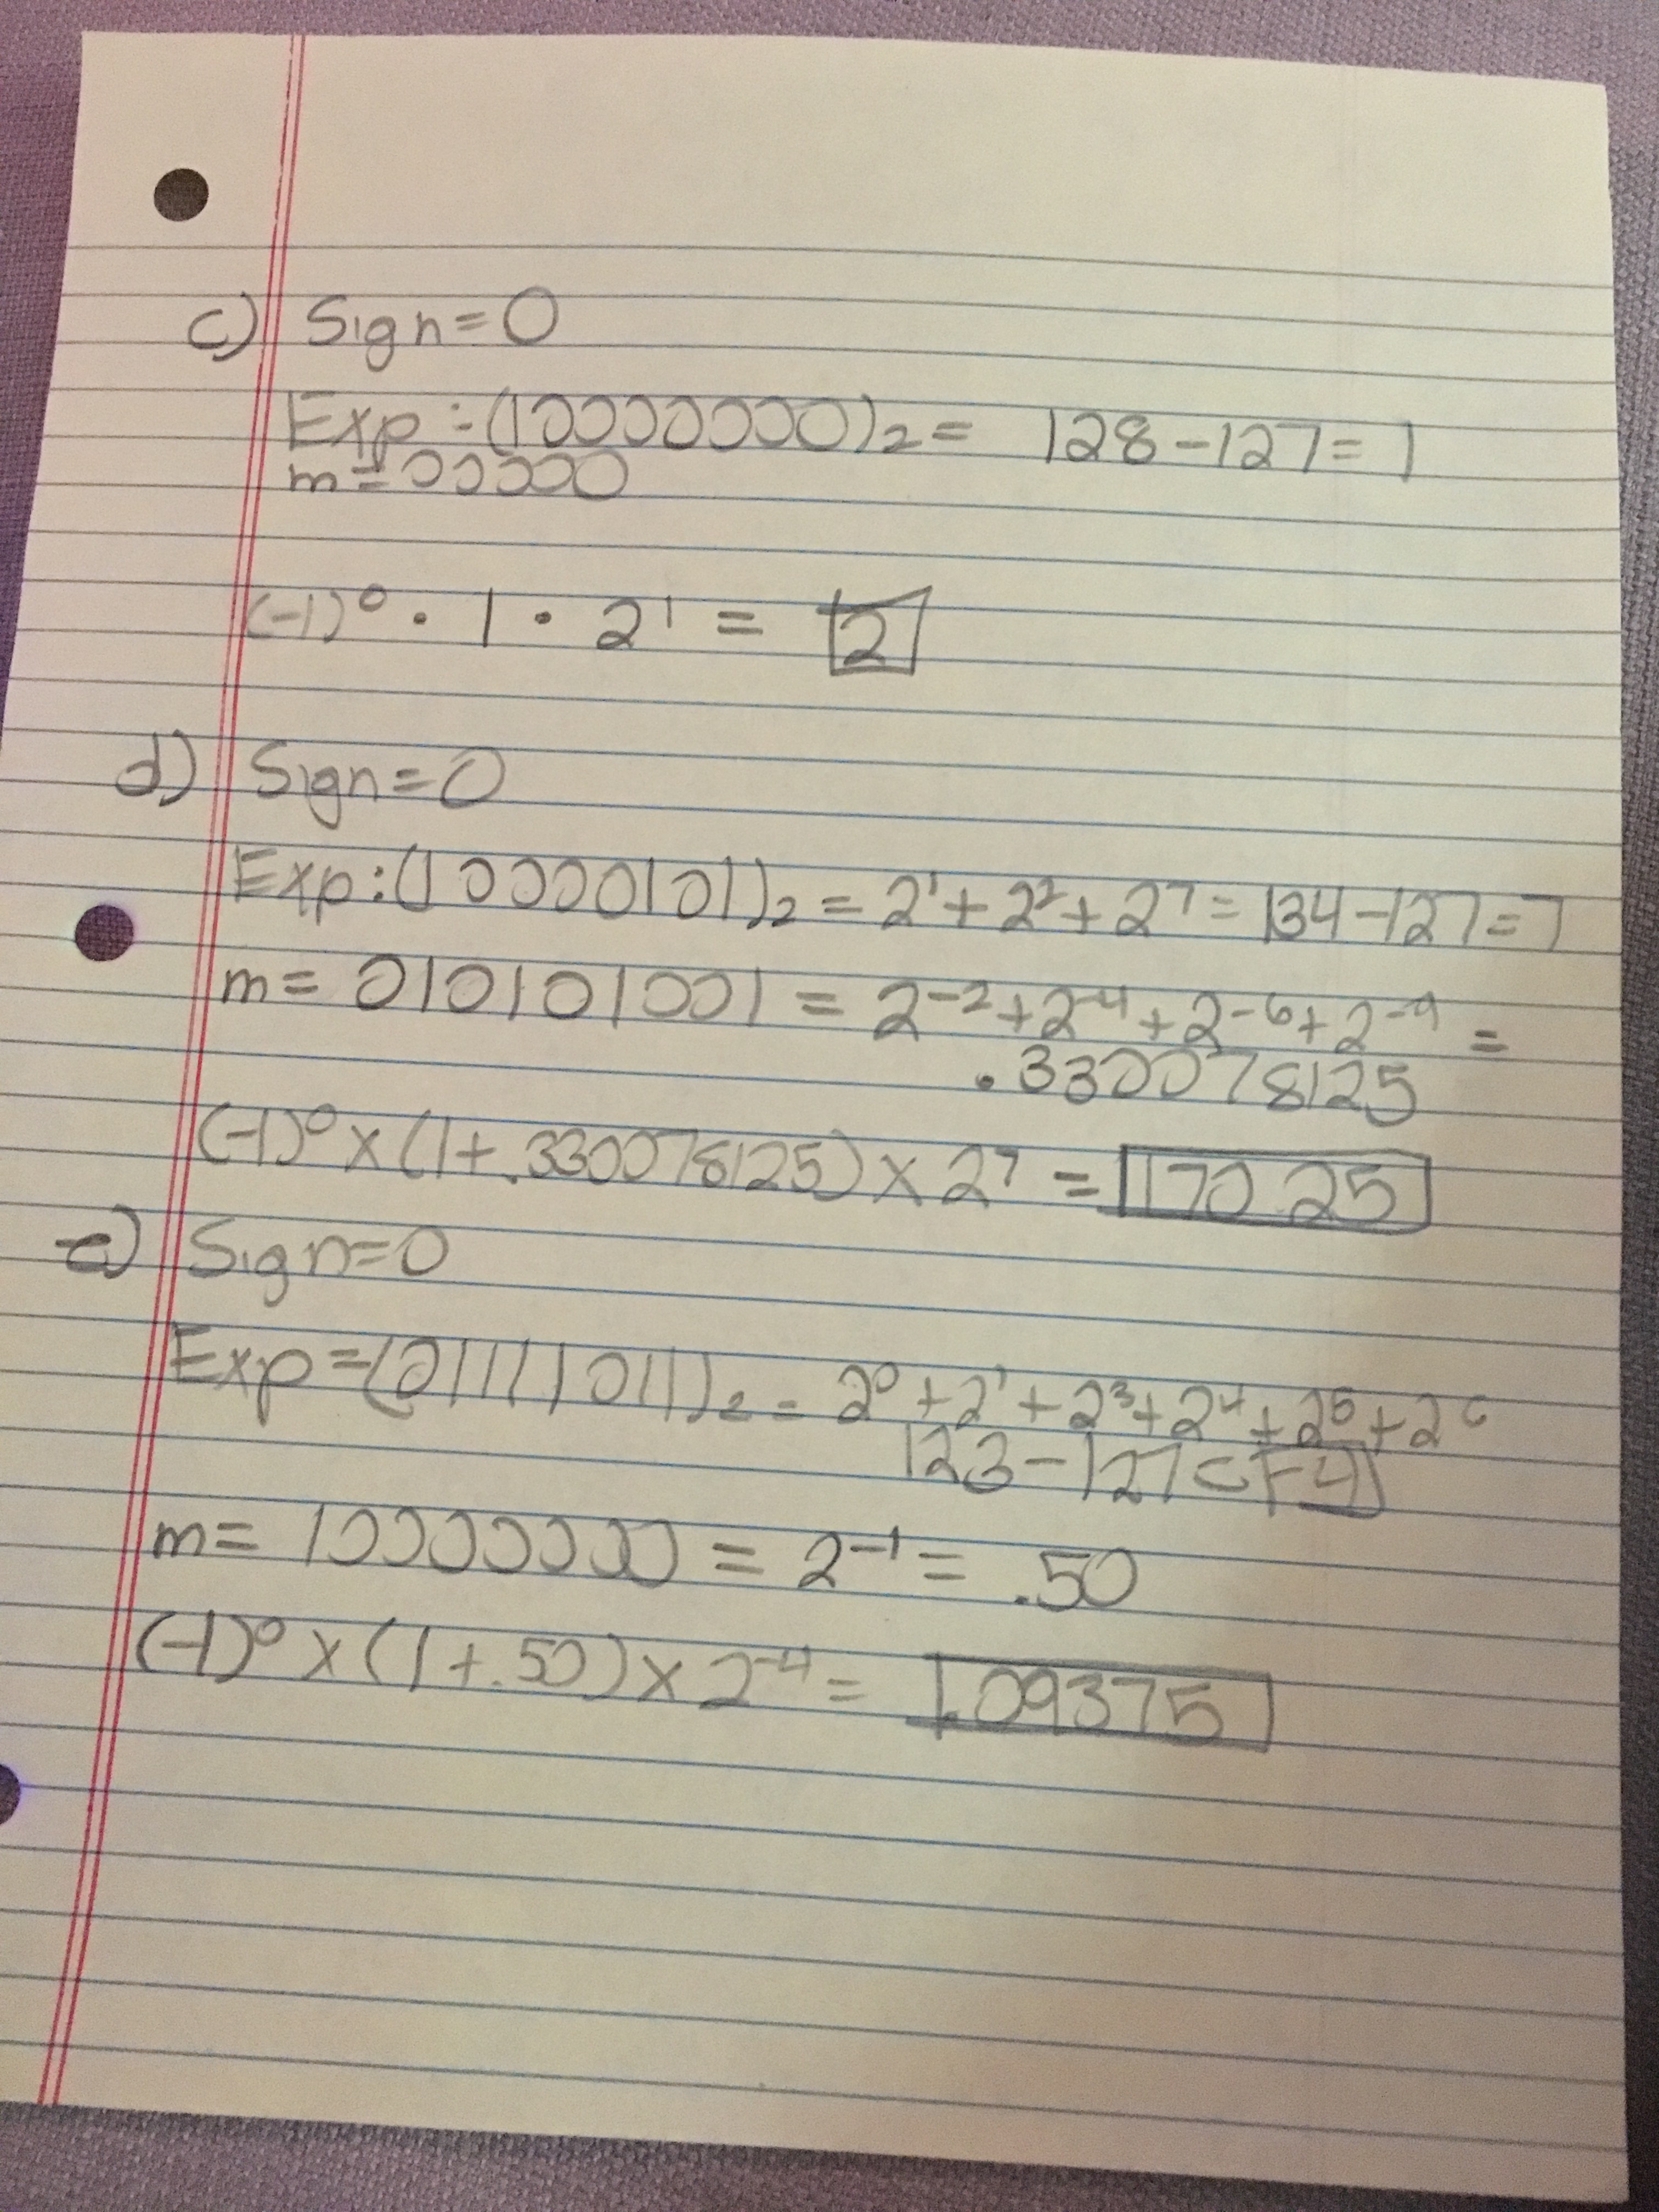 c) Sign=0
Exp:(10000000)₂= 128-127=1
m=00000
(-1)⁰ · 1 · 2¹ = 2
d) Sign=0
Exp:(10000101)₂=2¹+2²+2⁷=134-127=7
m= 010101001 = 2⁻²+2⁻⁴+2⁻⁶+2⁻⁹ =
.330078125
(-1)⁰x(1+.330078125)x2⁷ = 170.25
e) Sign=0
Exp=(01111011)₂=2⁰+2¹+2³+2⁴+2⁵+2⁶
123-127=-4
m= 100000000 = 2⁻¹= .50
(-1)⁰x(1+.50)x2⁻⁴= .09375